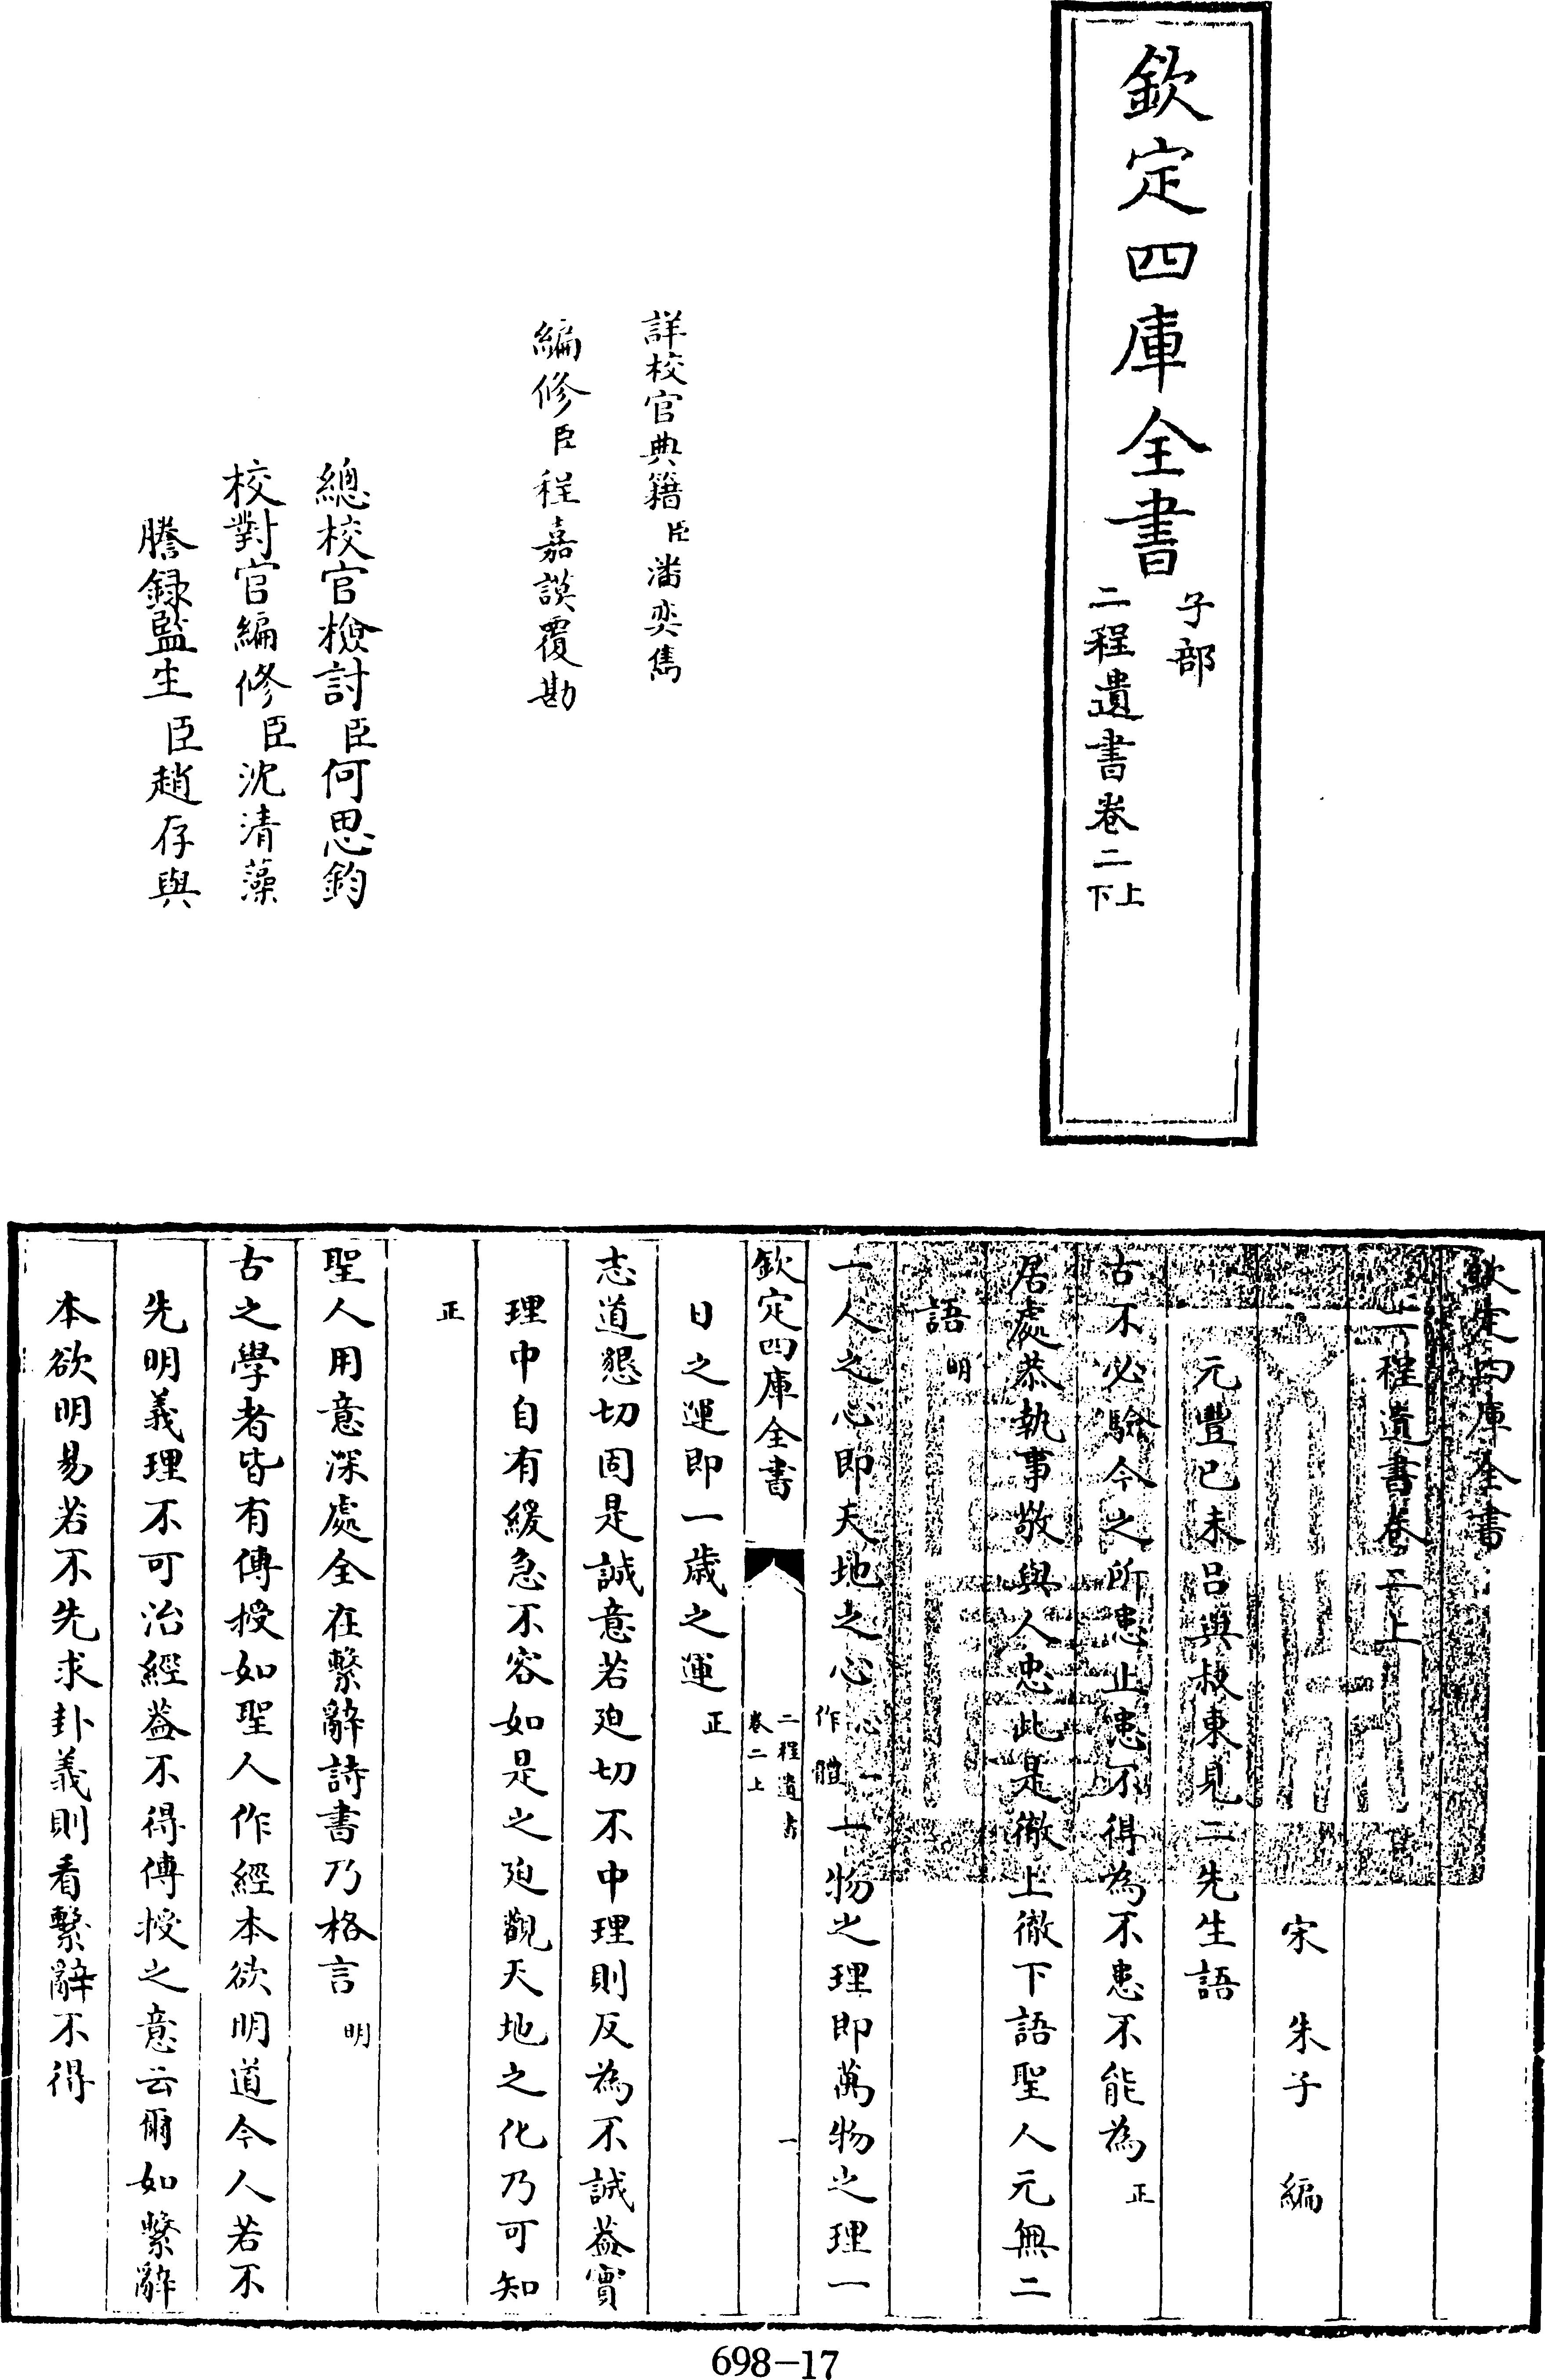 欽定四庫全書
子部
二程遺書卷二上下
詳校官典籍臣潘奕雋
編修臣程嘉謨覆勘
總校官檢討臣何思鈞
校對官編修臣沈清藻
謄録監生臣趙存與
欽定四庫全書
二程遺書卷二上
宋 朱子 編
元豐己未呂與叔東見二先生語
古不必驗今之所患止患不得為不患不能為正
居處恭執事敬與人忠此是徹上徹下語聖人元無二
語明
一人之心即天地之心心一作體一物之理即萬物之理一
欽定四庫全書
二程遺書
卷二上
一
日之運即一歲之運正
志道懇切固是誠意若廹切不中理則反為不誠蓋實
理中自有緩急不容如是之廹觀天地之化乃可知
正
聖人用意深處全在繫辭詩書乃格言明
古之學者皆有傳授如聖人作經本欲明道今人若不
先明義理不可治經蓋不得傳授之意云爾如繫辭
本欲明易若不先求卦義則看繫辭不得
698-17